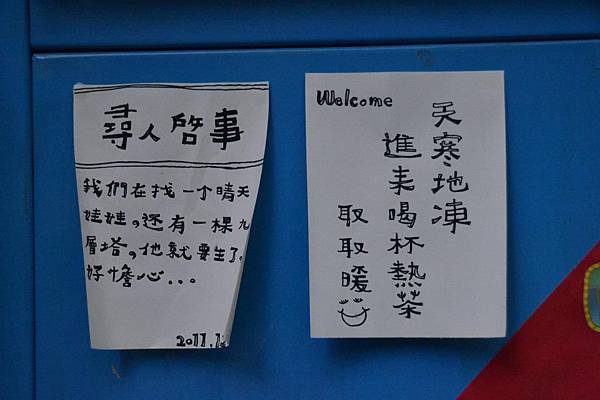 尋人啓事
我們在找一个晴天
娃娃,還有一棵九
層塔,他就要生了。
好憺心...。
2011.1
Welcome
天寒地凍
進來喝杯熱茶
取取暖